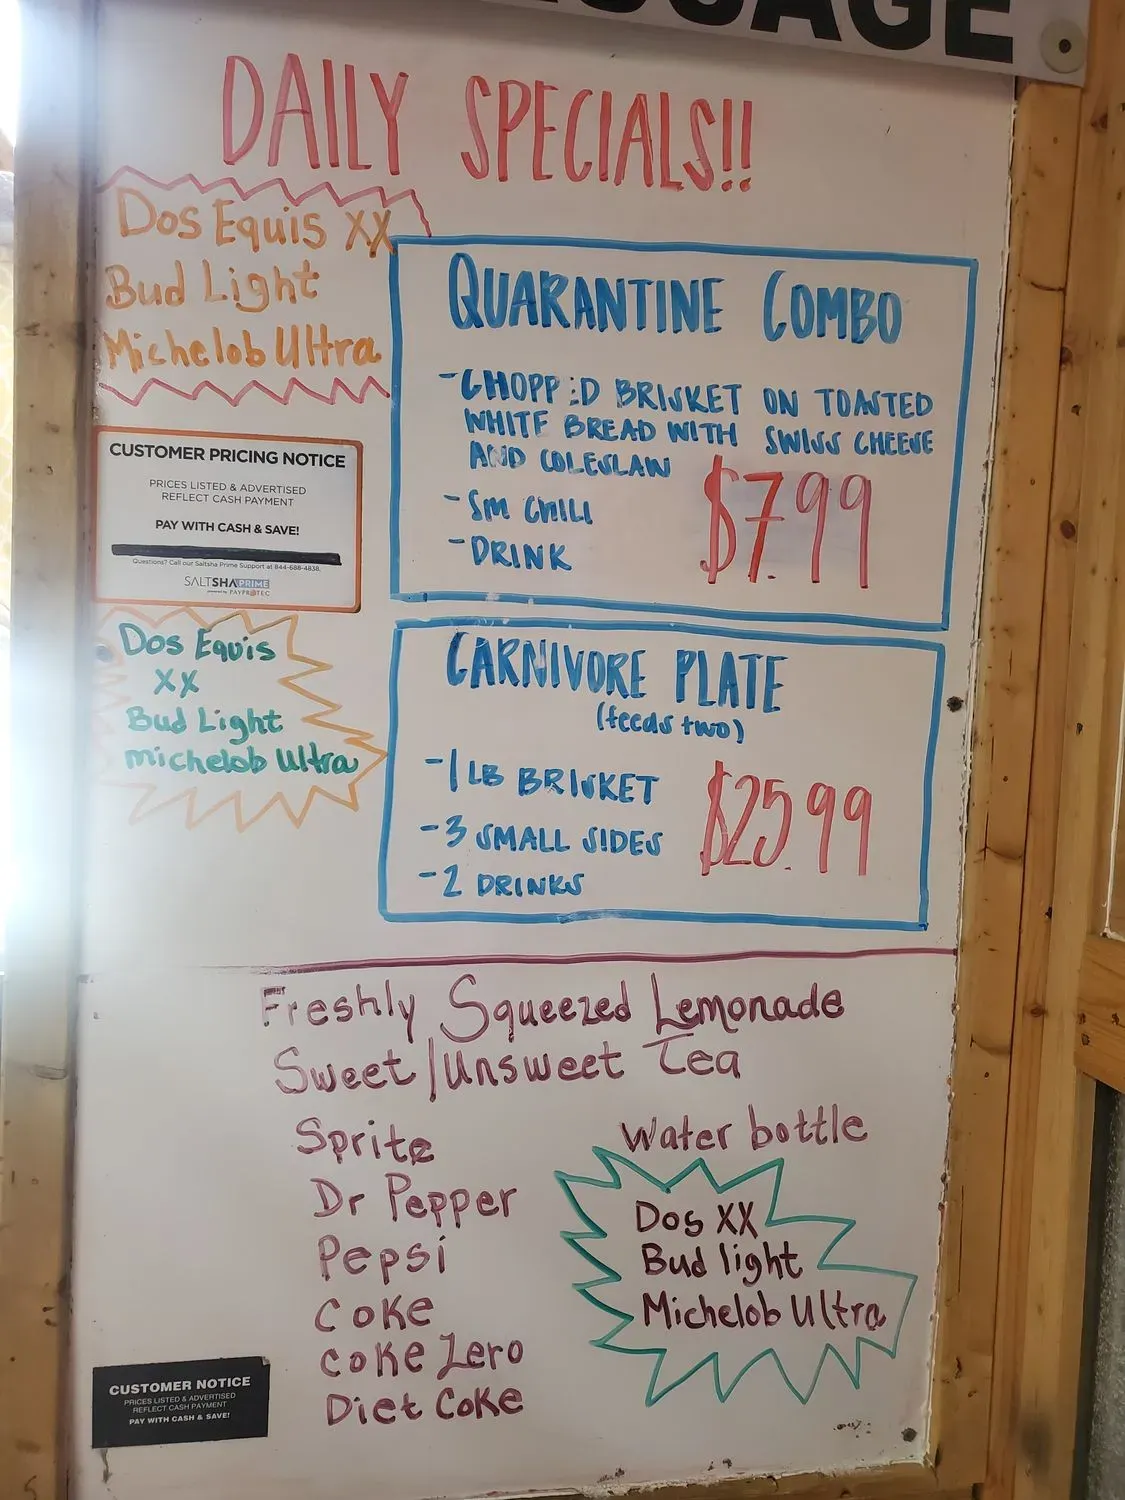 DAILY SPECIALS!!
Dos Equis XX
Bud Light
Michelob Ultra
QUARANTINE COMBO
-CHOPPED BRISKET ON TOASTED
WHITE BREAD WITH SWISS CHEESE
AND COLESLAW
-SM CHILI
-DRINK
$7.99
CUSTOMER PRICING NOTICE
PRICES LISTED & ADVERTISED
REFLECT CASH PAYMENT
PAY WITH CASH & SAVE!
Questions? Call our Saltsha Prime Support at 844-688-4838.
SALTSHA PRIME
powered by PAYPROTEC
Dos Equis
XX
Bud Light
michelob Ultra
CARNIVORE PLATE
(feeds two)
-1 LB BRISKET
-3 SMALL SIDES
-2 DRINKS
$25.99
Freshly Squeezed Lemonade
Sweet/Unsweet Tea
Sprite
Dr Pepper
Pepsi
Coke
Coke Zero
Diet Coke
Water bottle
Dos XX
Bud light
Michelob Ultra
CUSTOMER NOTICE
PRICES LISTED & ADVERTISED
REFLECT CASH PAYMENT
PAY WITH CASH & SAVE!